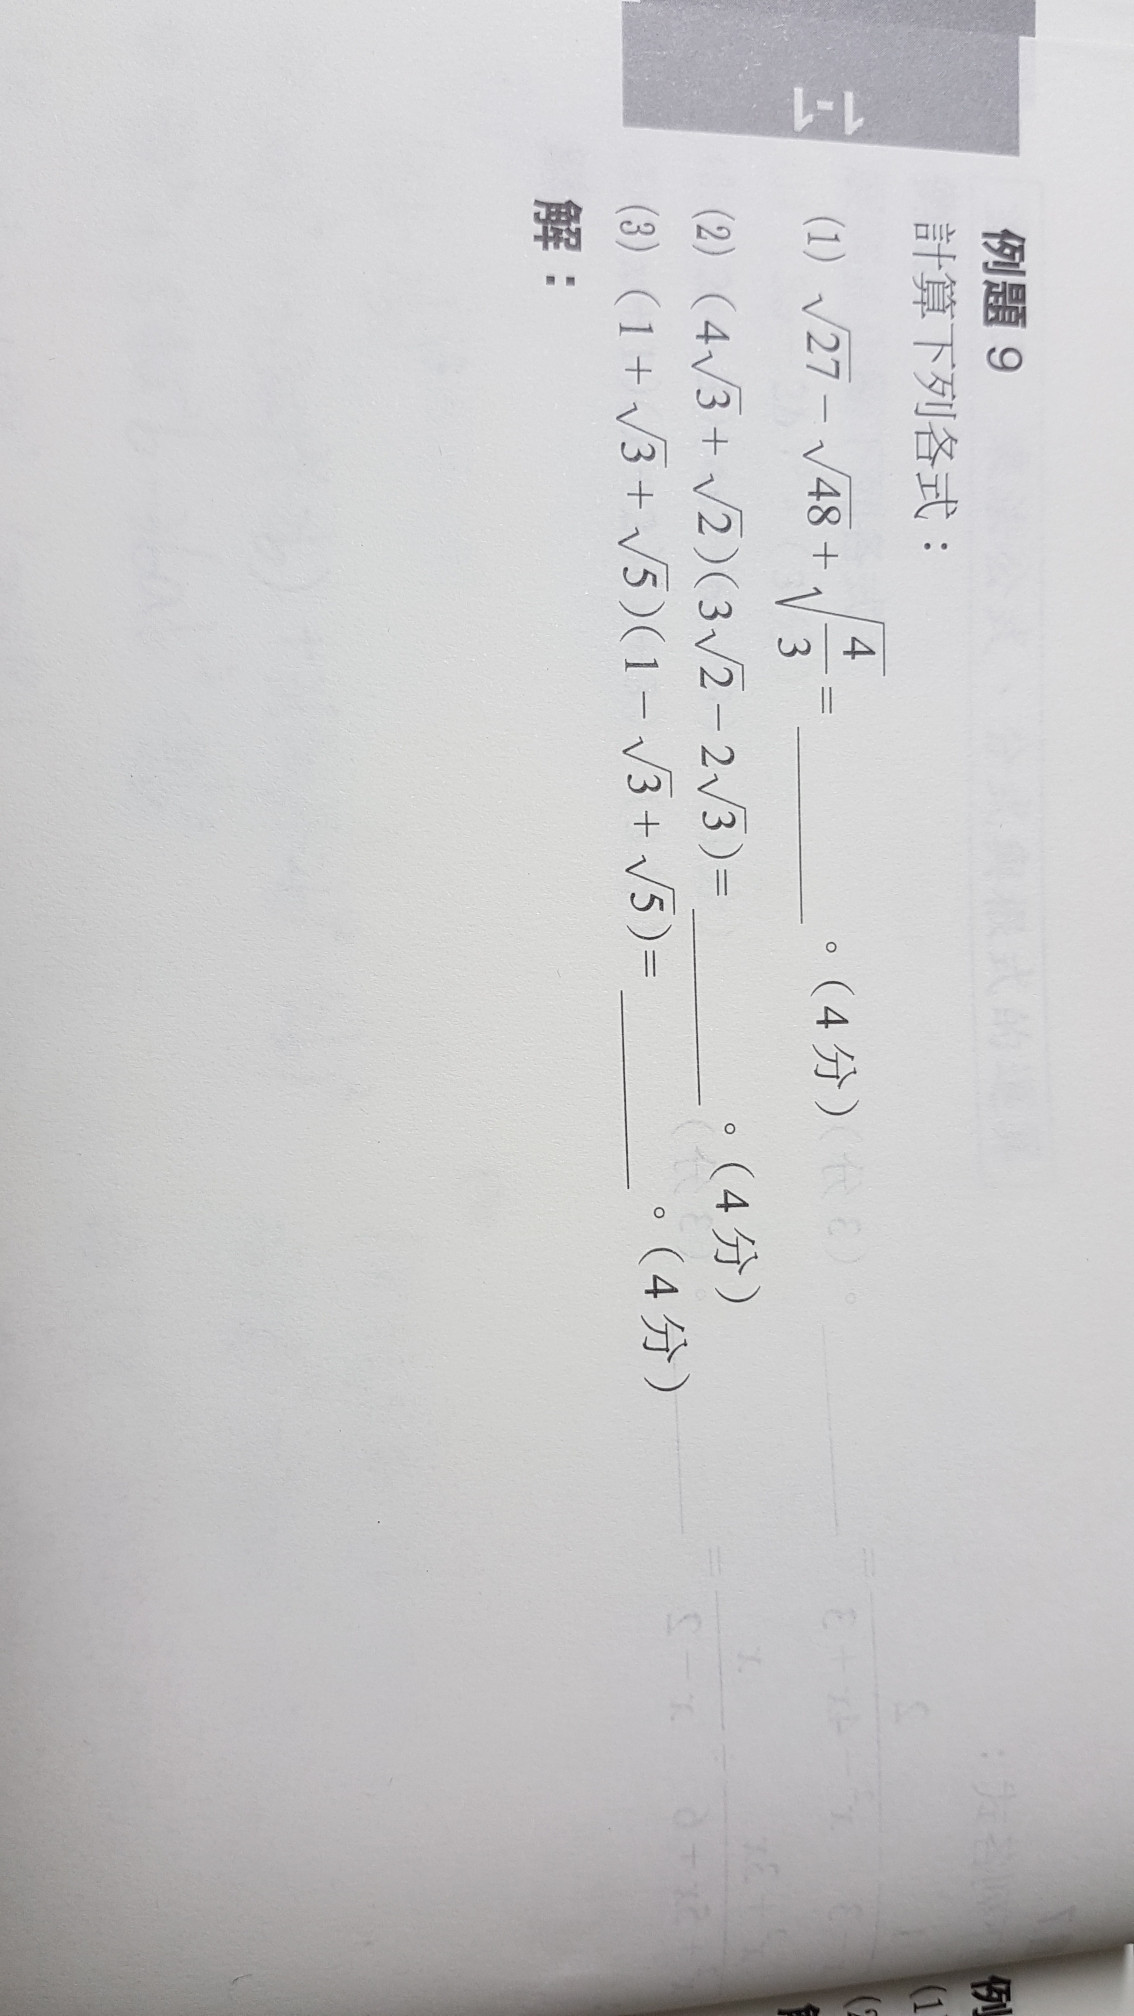 1-1
例題 9
計算下列各式：
(1) √27 − √48 + √(4/3) = ________ 。(4 分)
(2) (4√3 + √2)(3√2 − 2√3) = ________ 。(4 分)
(3) (1 + √3 + √5)(1 − √3 + √5) = ________ 。(4 分)
解：
例
(1)
(2